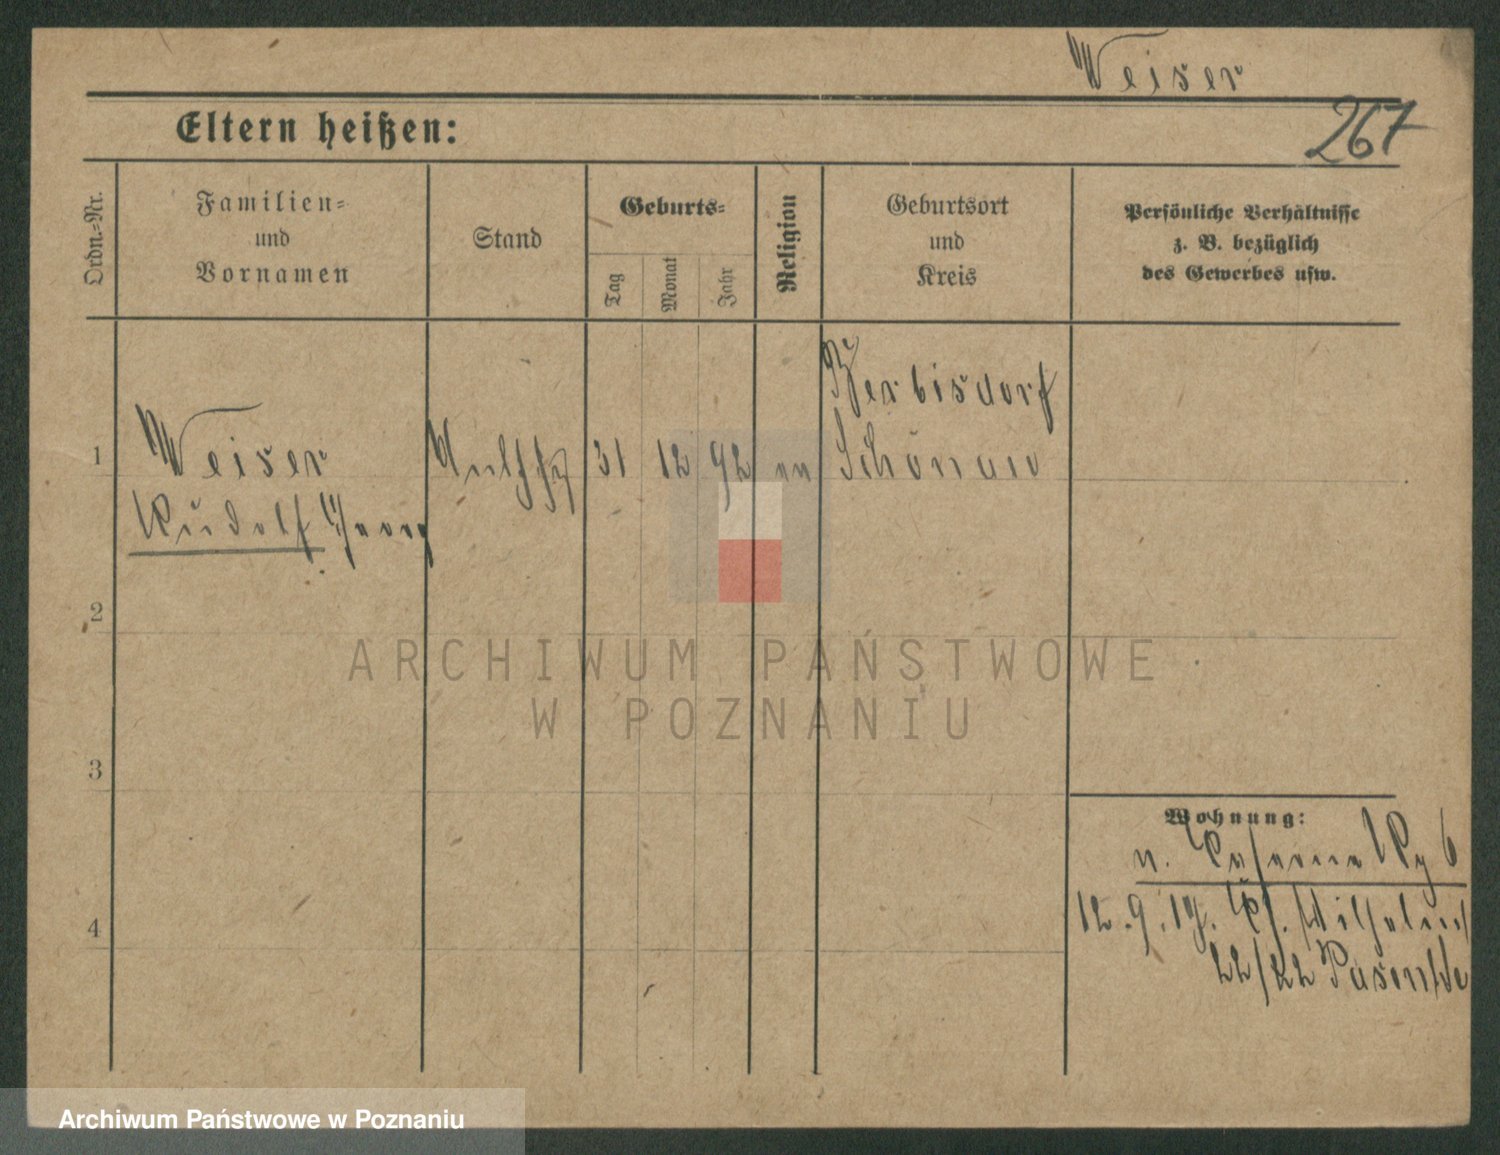 Weiser
267
Eltern heißen:
Ordn.-Nr.
Familien-
und
Vornamen
Stand
Geburts-
Tag
Monat
Jahr
Religion
Geburtsort
und
Kreis
Persönliche Verhältnisse
z. B. bezüglich
des Gewerbes usw.
Berbisdorf
1 Weiser 31 12 92 Schönau
Rudolf Georg
2
3
4
Wohnung:
6
12.9.19. Wilhelm
22/22
ARCHIWUM PAŃSTWOWE
W POZNANIU
Archiwum Państwowe w Poznaniu